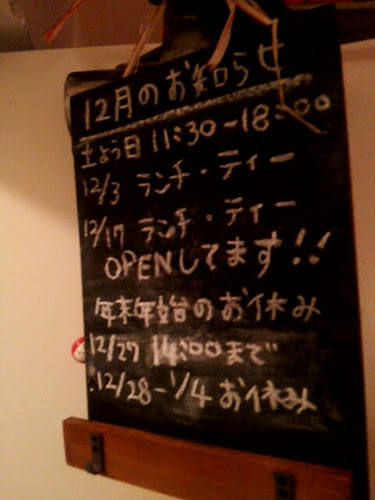 12月のお知らせ
土よう日 11:30-18:00
12/3 ランチ・ティー
12/17 ランチ・ティー
OPENしてます!!
年末年始のお休み
12/27 14:00まで
12/28-1/4 お休み